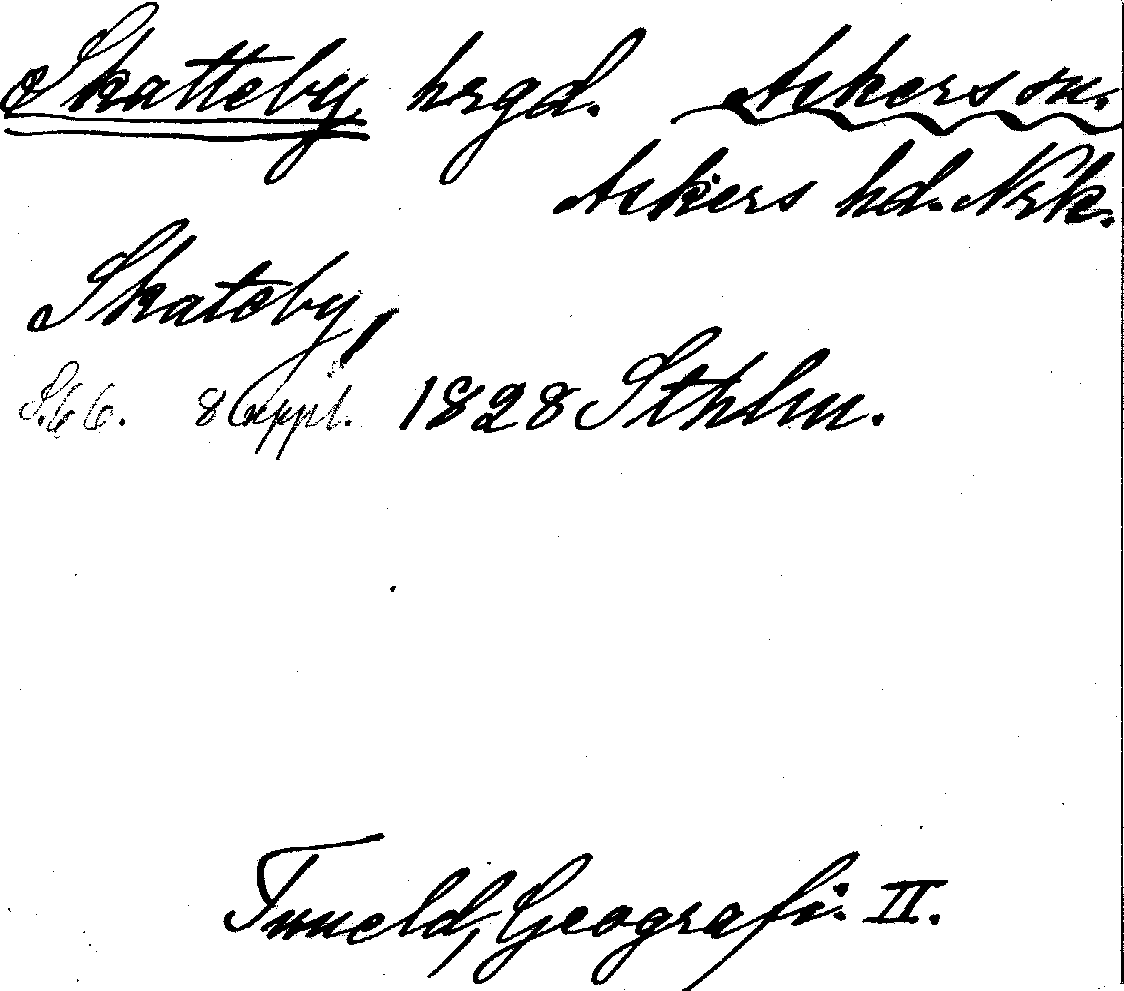 Skatteby hrgd. Askers sn.
Askers hd. Nrk.
Skateby,
S. 66. 8 uppl. 1828 Sthlm.
Tuneld, Geografi. II.